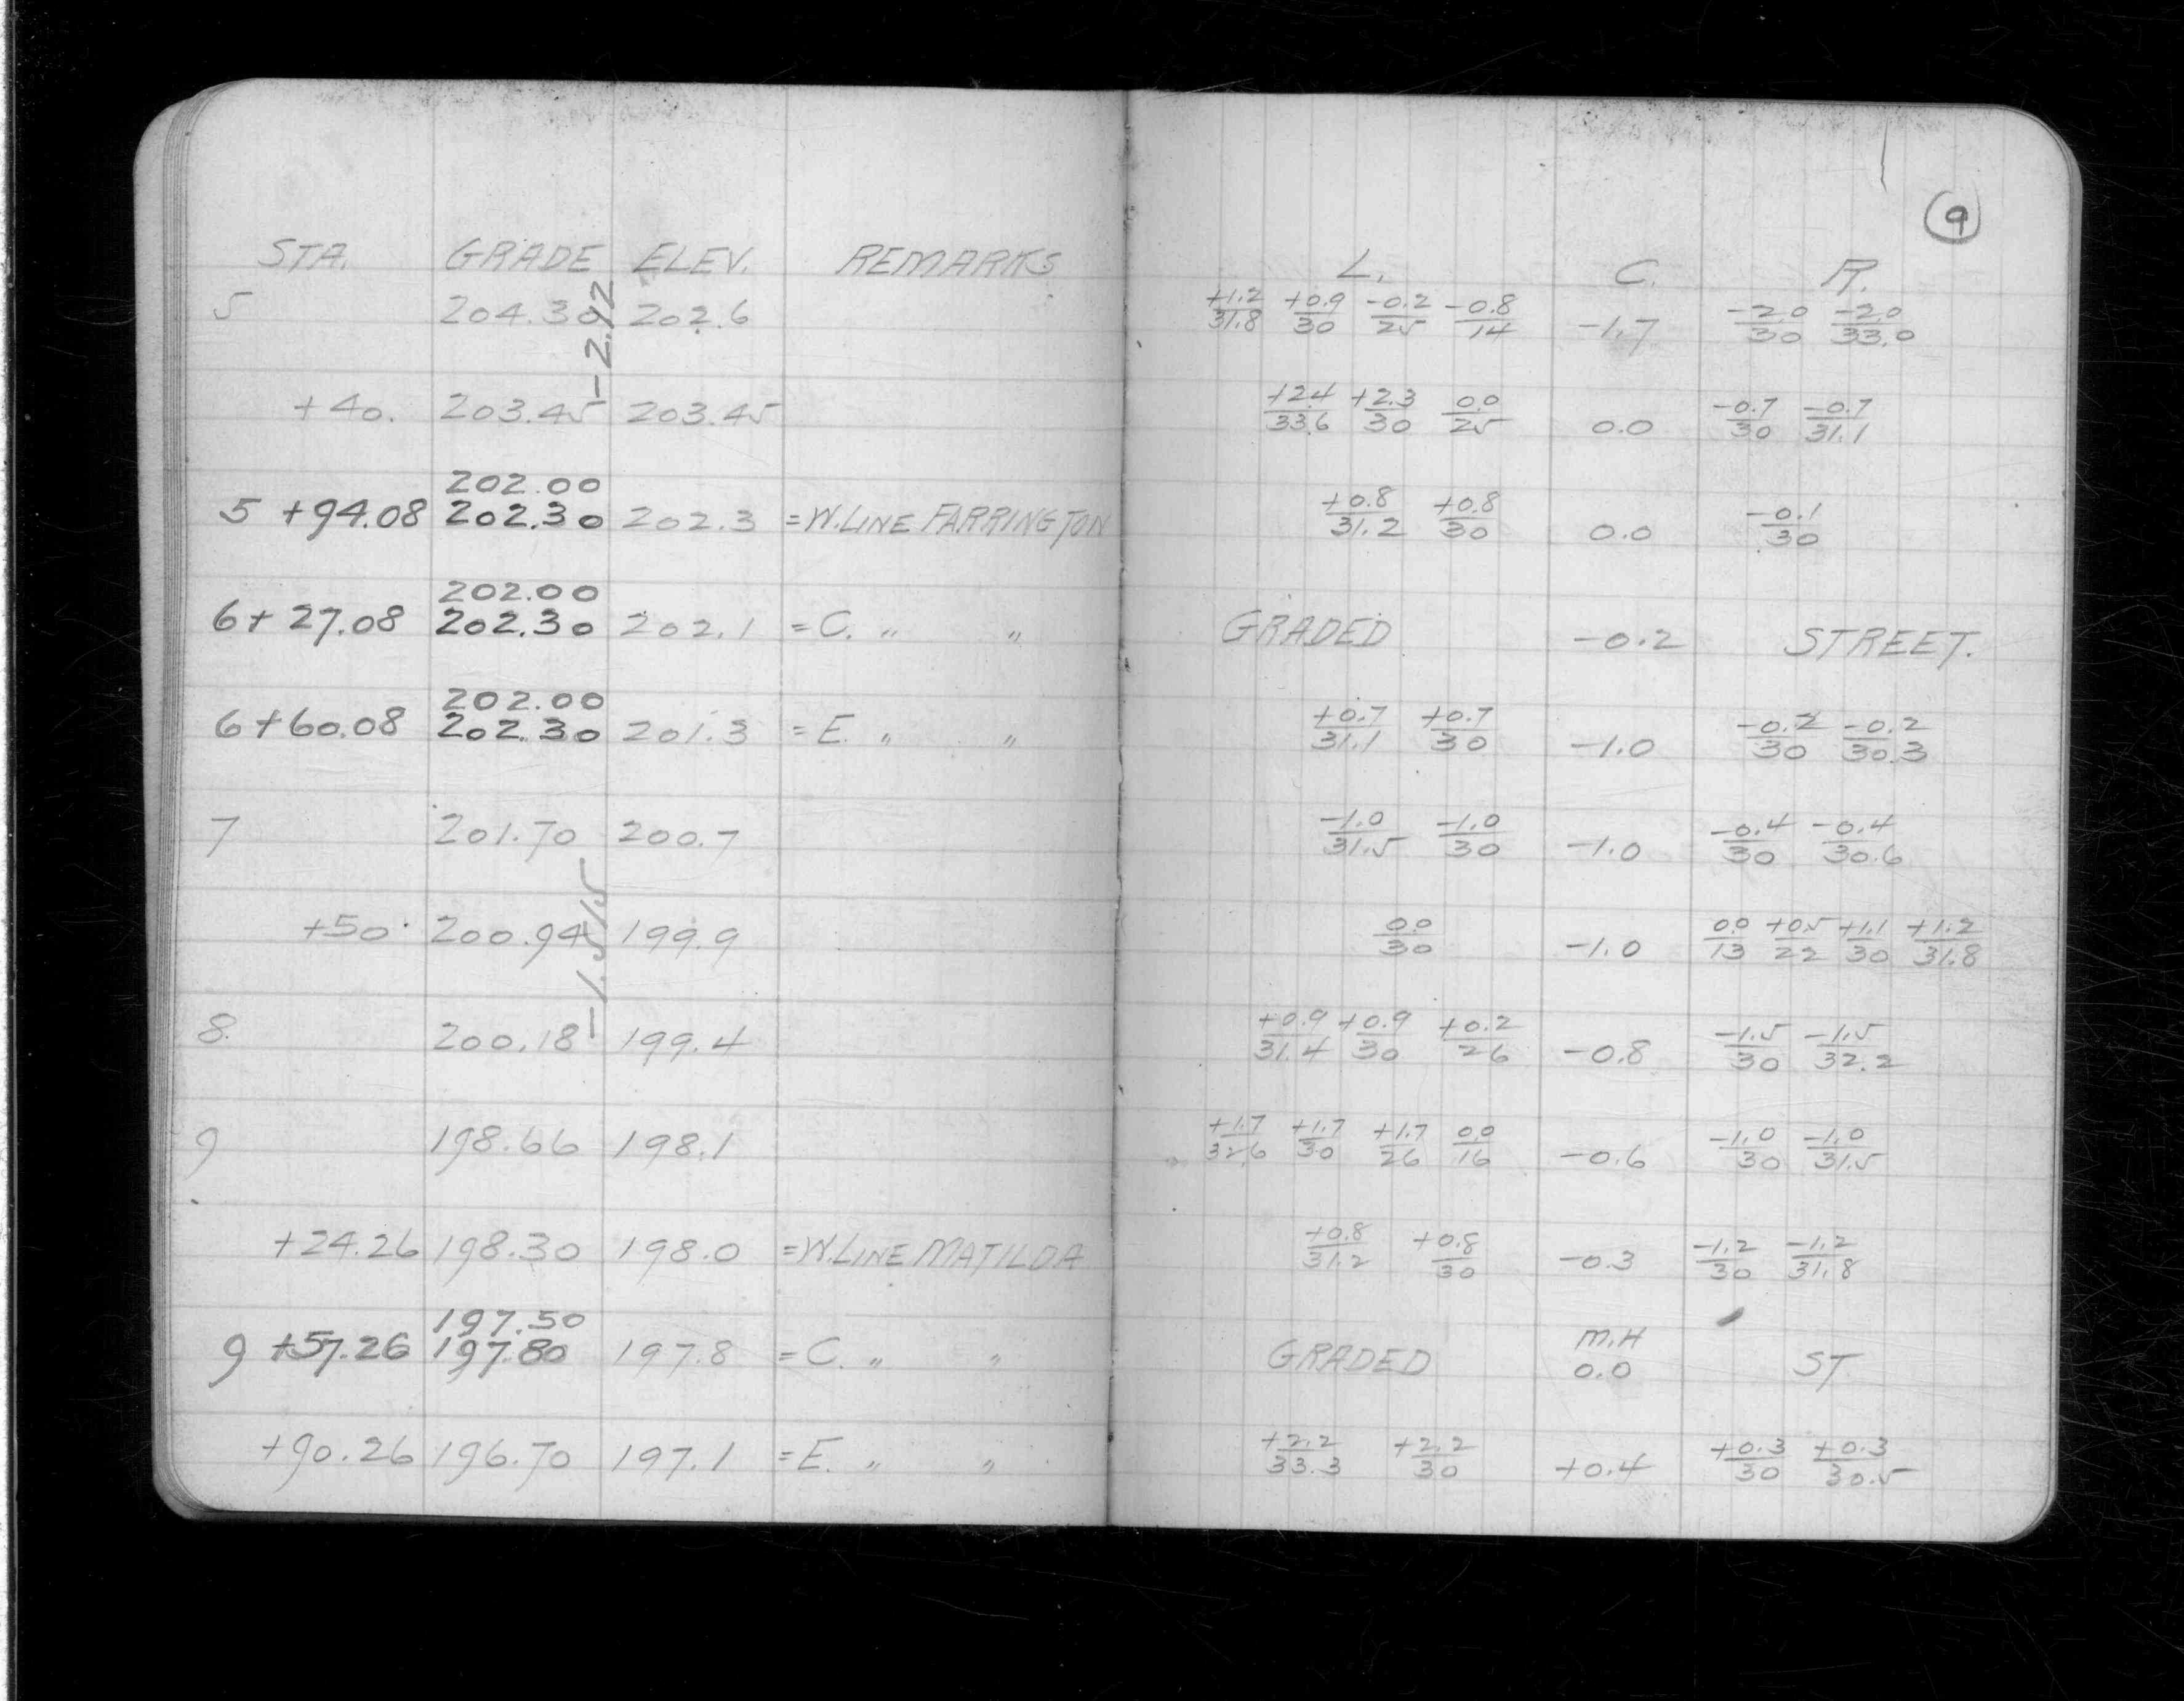 9
STA. GRADE ELEV. REMARKS L. C. R.
5 204.30 202.6 +1.2/31.8 +0.9/30 -0.2/25 -0.8/14 -1.7 -2.0/30 -2.0/33.0
-2.12
+40. 203.45 203.45 +2.4/33.6 +2.3/30 0.0/25 0.0 -0.7/30 -0.7/31.1
202.00
5 +94.08 202.30 202.3 =W.LINE FARRINGTON +0.8/31.2 +0.8/30 0.0 -0.1/30
202.00
6+27.08 202.30 202.1 =C. " " GRADED -0.2 STREET.
202.00
6+60.08 202.30 201.3 =E. " " +0.7/31.1 +0.7/30 -1.0 -0.2/30 -0.2/30.3
7 201.70 200.7 -1.0/31.5 -1.0/30 -1.0 -0.4/30 -0.4/30.6
-1.515
+50 200.94 199.9 0.0/30 -1.0 0.0/13 +0.5/22 +1.1/30 +1.2/31.8
8. 200.18 199.4 +0.9/31.4 +0.9/30 +0.2/26 -0.8 -1.5/30 -1.5/32.2
9 198.66 198.1 +1.7/32.6 +1.7/30 +1.7/26 0.0/16 -0.6 -1.0/30 -1.0/31.5
+24.26 198.30 198.0 =W.LINE MATILDA +0.8/31.2 +0.8/30 -0.3 -1.2/30 -1.2/31.8
197.50 M.H
9 +57.26 197.80 197.8 =C. " " GRADED 0.0 ST.
+90.26 196.70 197.1 =E. " " +2.2/33.3 +2.2/30 +0.4 +0.3/30 +0.3/30.5